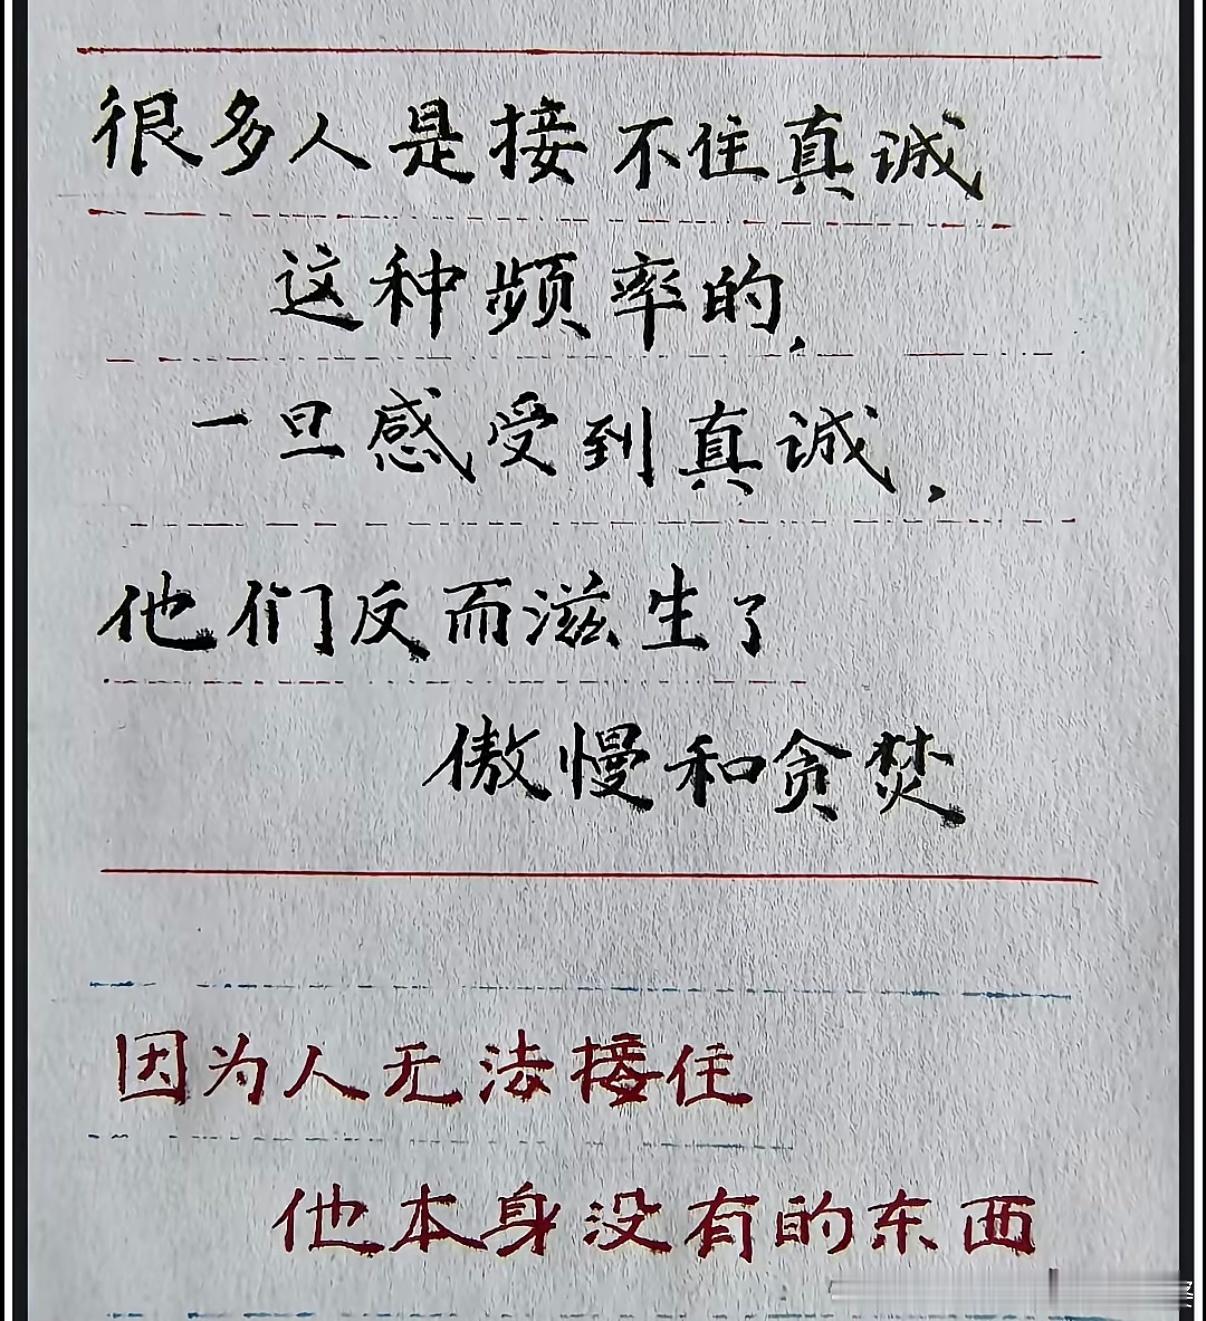 很多人是接不住真诚
这种频率的,
一旦感受到真诚,
他们反而滋生了
傲慢和贪焚
因为人无法接住
他本身没有的东西